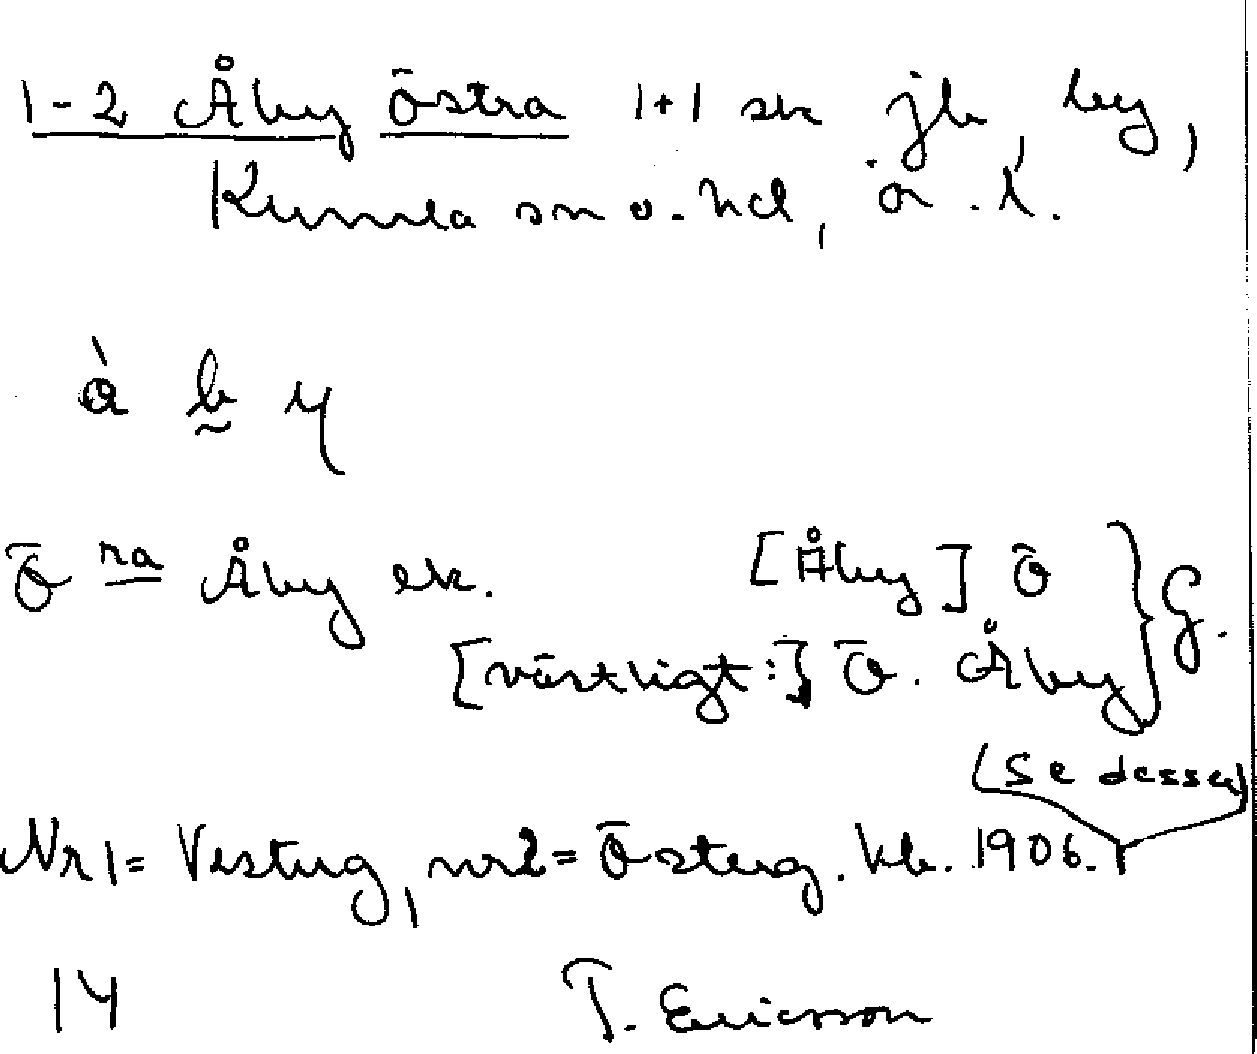 1-2 Åby östra 1+1 sk jb, by,
Kumla sn o. hd, ö. l.
à b̰ y
Ö ra Åby ek. [Åby] Ö
[världsligt:] Ö. Åby } G.
(Se dessa)
Nr 1 = Vestug, nr 2 = Österg. kb. 1906.
14 T. Ericsson